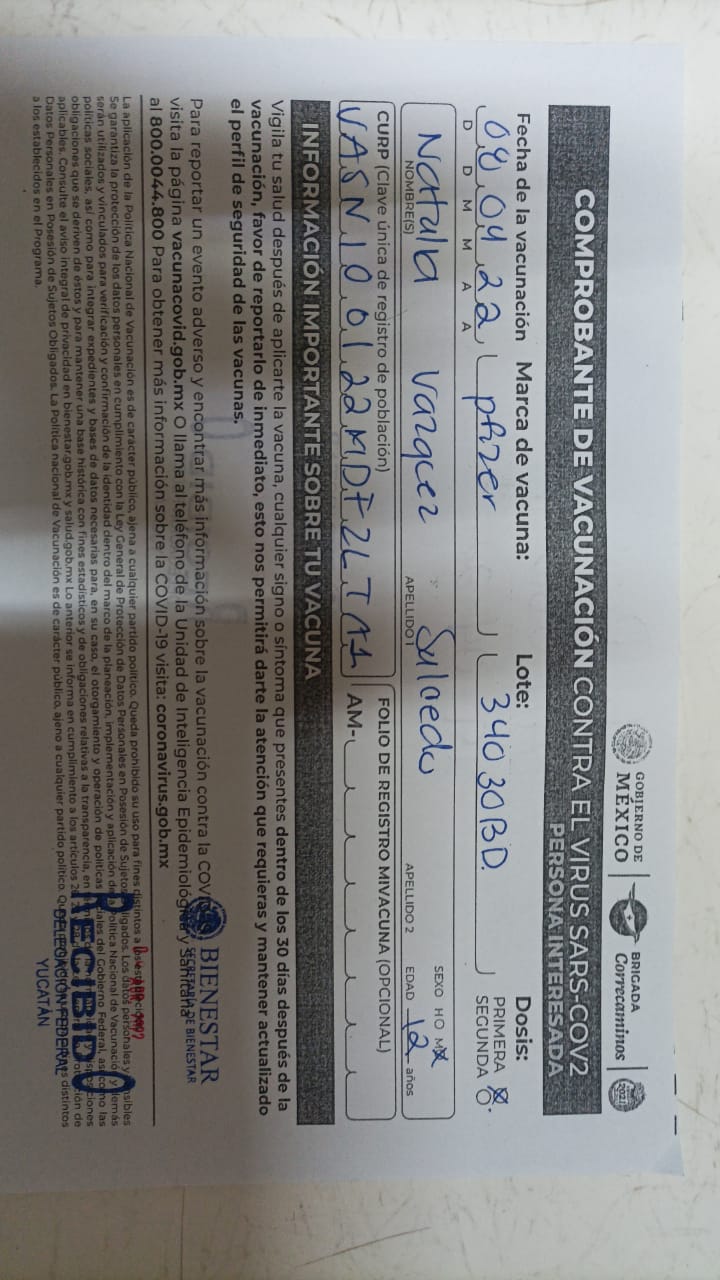 GOBIERNO DE
MÉXICO
BRIGADA
Correcaminos
2021
COMPROBANTE DE VACUNACIÓN CONTRA EL VIRUS SARS-COV2
PERSONA INTERESADA
Fecha de la vacunación Marca de vacuna: Lote: Dosis:
08 04 22 pfizer 34030BD. PRIMERA
D D M M A A SEGUNDA
Vazquez Salcedo SEXO H M
NOMBRE(S) APELLIDO 1 APELLIDO 2 EDAD 12 años
CURP (Clave única de registro de población) FOLIO DE REGISTRO MIVACUNA (OPCIONAL)
AM-
INFORMACIÓN IMPORTANTE SOBRE TU VACUNA
Vigila tu salud después de aplicarte la vacuna, cualquier signo o síntoma que presentes dentro de los 30 días después de la
vacunación, favor de reportarlo de inmediato, esto nos permitirá darte la atención que requieras y mantener actualizado
el perfil de seguridad de las vacunas.
Para reportar un evento adverso y encontrar más información sobre la vacunación contra la
visita la página vacunacovid.gob.mx O llama al teléfono de la Unidad de Inteligencia Epidemiológica y Sanitaria
al 800.0044.800 Para obtener más información sobre la COVID-19 visita: coronavirus.gob.mx
BIENESTAR
SECRETARÍA DE BIENESTAR
La aplicación de la Política Nacional de Vacunación es de carácter público, ajena a cualquier partido político. Queda prohibido su uso para fines distintos a los
Se garantiza la protección de los datos personales en cumplimiento con la Ley General de Protección de Datos Personales en Posesión de Sujetos Obligados. Los datos personales y sensibles
serán utilizados y vinculados para verificación y confirmación de la identidad dentro del marco de la planeación, implementación y aplicación de la Política Nacional de Vacunación y demás
políticas sociales, así como para integrar expedientes y bases de datos necesarias para, en su caso, el otorgamiento y operación de políticas sociales del Gobierno Federal, así como las
obligaciones que se deriven de éstos y para mantener una base histórica con fines estadísticos y de obligaciones relativas a la transparencia, en
aplicables. Consulte el aviso integral de privacidad en bienestar.gob.mx y salud.gob.mx Lo anterior se informa en cumplimiento a los artículos
Datos Personales en Posesión de Sujetos Obligados. La Política nacional de Vacunación es de carácter público, ajeno a cualquier partido político. distintos
a los establecidos en el Programa.
RECIBIDO
DELEGACIÓN FEDERAL
YUCATÁN